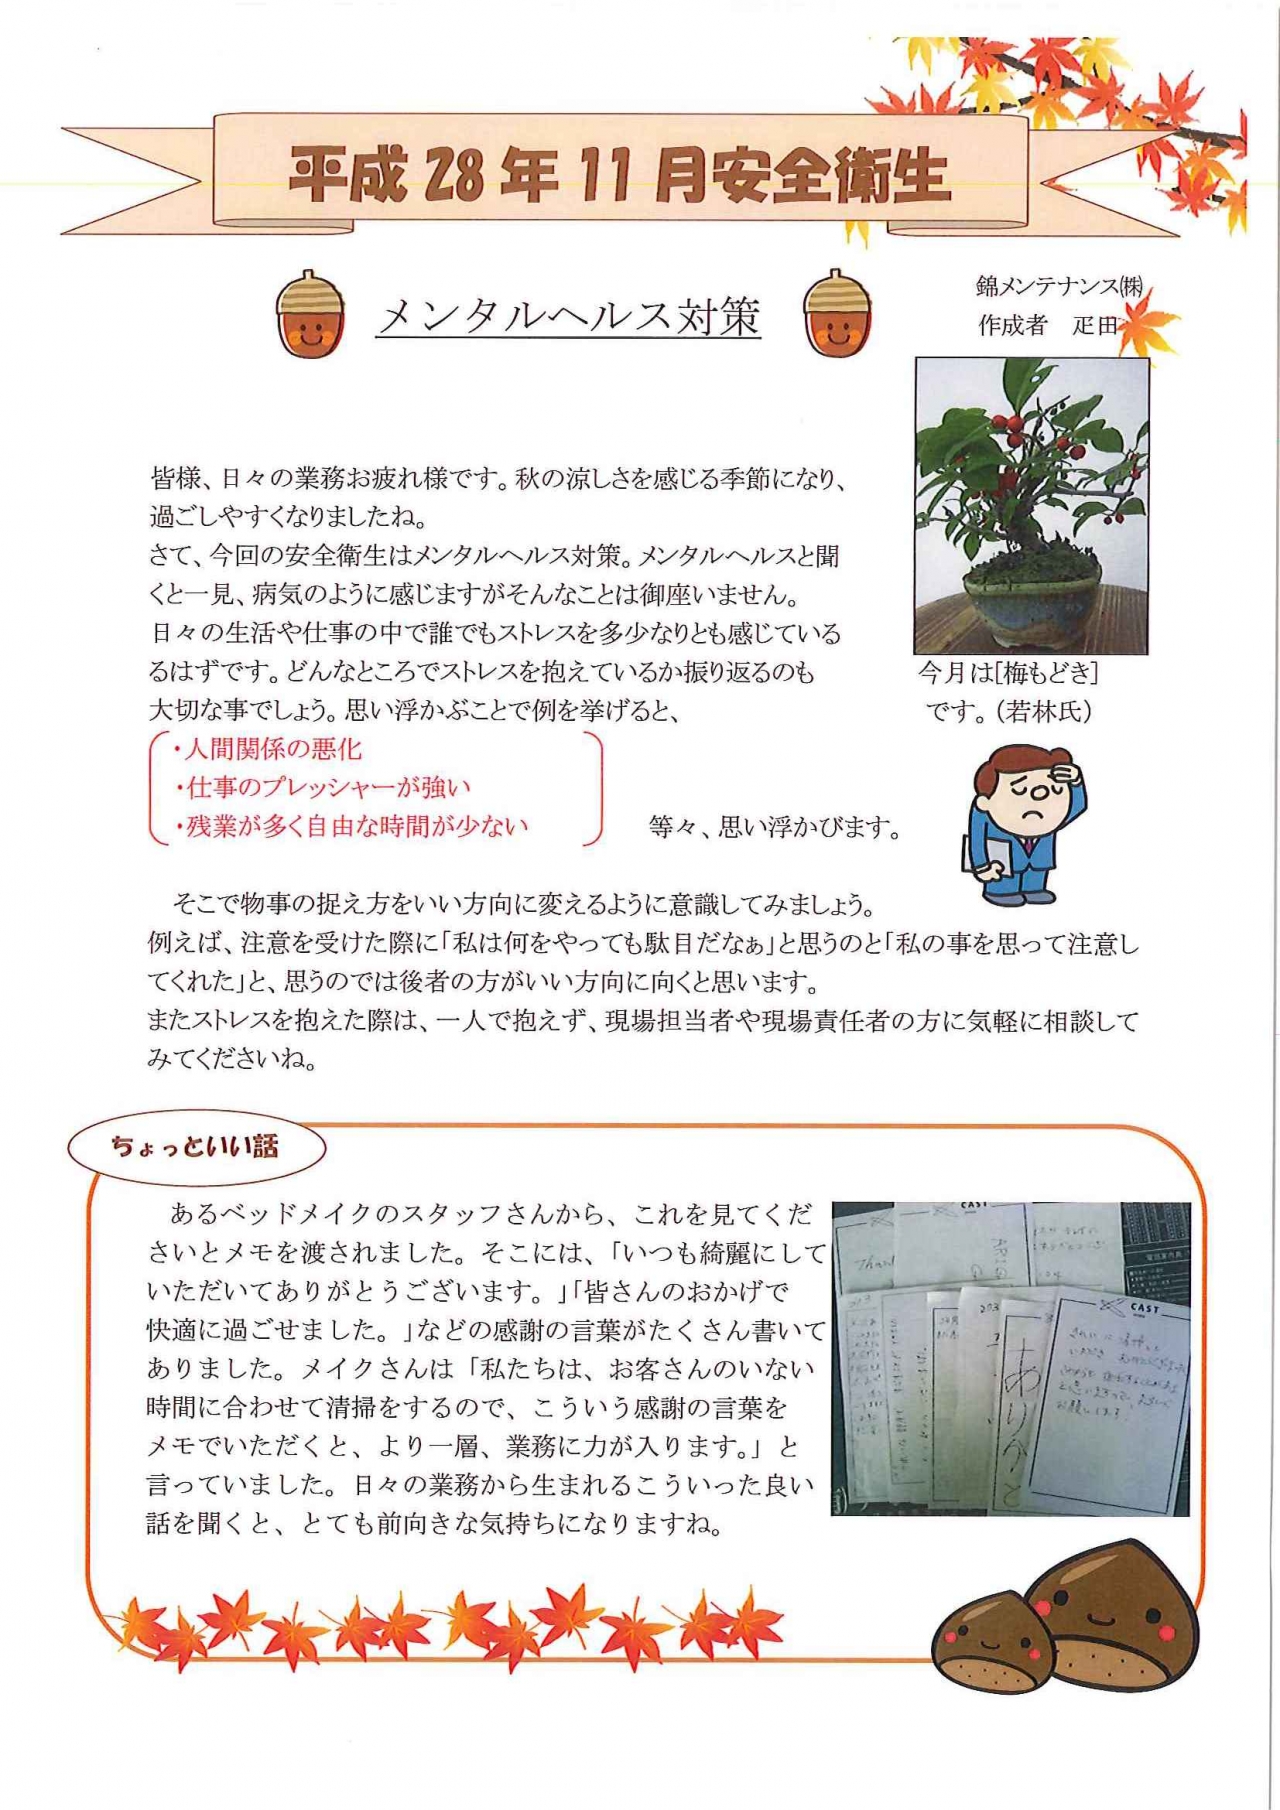 平成28年11月安全衛生
メンタルヘルス対策
錦メンテナンス㈱
作成者　疋田
皆様、日々の業務お疲れ様です。秋の涼しさを感じる季節になり、
過ごしやすくなりましたね。
さて、今回の安全衛生はメンタルヘルス対策。メンタルヘルスと聞
くと一見、病気のように感じますがそんなことは御座いません。
日々の生活や仕事の中で誰でもストレスを多少なりとも感じている
るはずです。どんなところでストレスを抱えているか振り返るのも
大切な事でしょう。思い浮かぶことで例を挙げると、
今月は[梅もどき]
です。（若林氏）
・人間関係の悪化
・仕事のプレッシャーが強い
・残業が多く自由な時間が少ない
等々、思い浮かびます。
そこで物事の捉え方をいい方向に変えるように意識してみましょう。
例えば、注意を受けた際に「私は何をやっても駄目だなぁ」と思うのと「私の事を思って注意し
てくれた」と、思うのでは後者の方がいい方向に向くと思います。
またストレスを抱えた際は、一人で抱えず、現場担当者や現場責任者の方に気軽に相談して
みてくださいね。
ちょっといい話
あるベッドメイクのスタッフさんから、これを見てくだ
さいとメモを渡されました。そこには、「いつも綺麗にして
いただいてありがとうございます。」「皆さんのおかげで
快適に過ごせました。」などの感謝の言葉がたくさん書いて
ありました。メイクさんは「私たちは、お客さんのいない
時間に合わせて清掃をするので、こういう感謝の言葉を
メモでいただくと、より一層、業務に力が入ります。」と
言っていました。日々の業務から生まれるこういった良い
話を聞くと、とても前向きな気持ちになりますね。
CAST
CAST